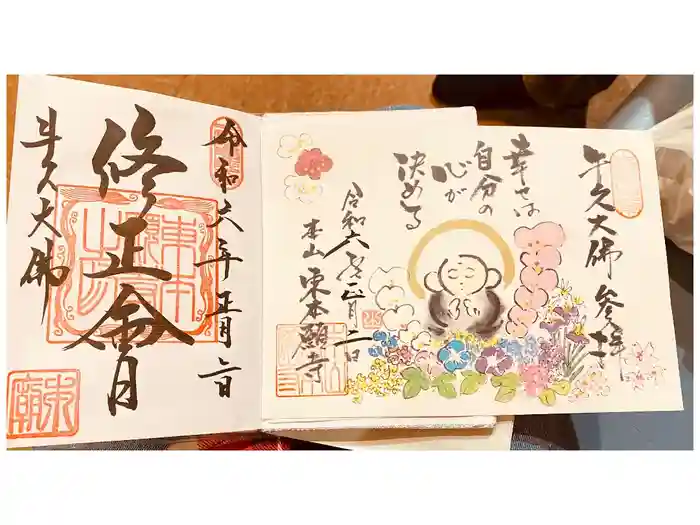 令和六年正月二日
修正會
牛久大佛
牛久大佛 参拝
幸せは
自分の
心が
決める
令和六年正月二日
本山 東本願寺